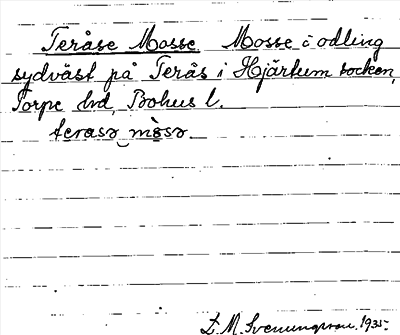 Teråse Mosse Mosse i odling
sydväst på Terås i Hjärtum socken,
Torpe hd, Bohus l.
terasə mòsə
D. M. Svenungsson. 1935.